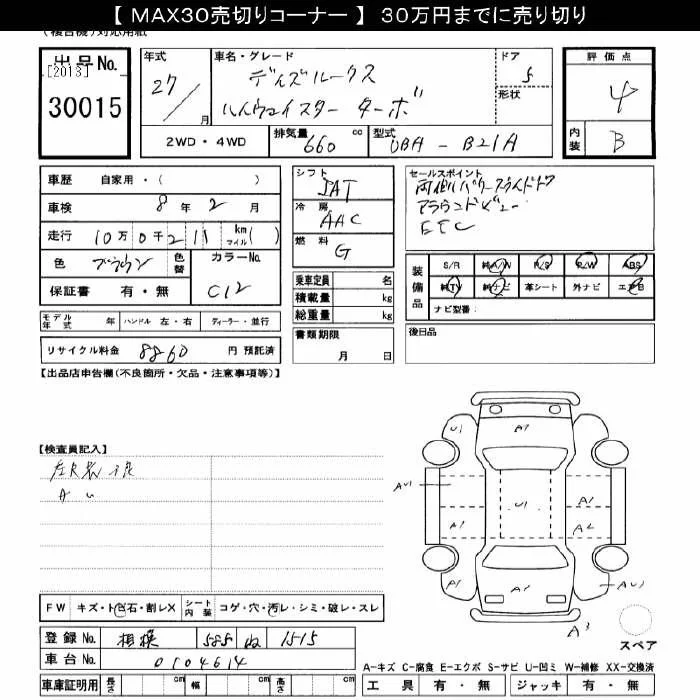 【 MAX30売切りコーナー 】 30万円までに売り切り
(複合機)対応用紙
出品No.
[2013]
30015
年式
27/
月
車名・グレード
デイズルークス
ハイウェイスター ターボ
ドア
5
形状
2WD・4WD
排気量 660 cc
型式 DBA - B21A
評価点
4
内装 B
車歴 自家用・( )
車検 8年 2月
走行 10万0千211 km マイル( )
色 ブラウン 色替
カラーNo. C12
保証書 有・無
モデル年式 年 ハンドル 左・右 ディーラー・並行
リサイクル料金 8860 円 預託済
シフト
冷房 AAC
燃料 G
乗車定員 名
積載量 kg
総重量 kg
書類期限
月 日
セールスポイント
両側パワースライドドア
アラウンドビュー
ETC
装備品
S/R 純A/W P/S P/W ABS
純TV 純ナビ 革シート 外ナビ エアB
ナビ型番:
後日品
【出品店申告欄(不良箇所・欠品・注意事項等)】
【検査員記入】
A U
FW キズ・ト石・割レX
シート内装 コゲ・穴・汚レ・シミ・破レ・スレ
登録No. 相模 585 ぬ 1515
車台No. 0104614
車庫証明用 長さ cm 幅 cm 高さ cm
U1
A1
AU1
U1
A1
A1
A2
A1
A1
AU1
A3
スペア
A-キズ C-腐食 E-エクボ S-サビ U-凹ミ W-補修 XX-交換済
工具 有・無 ジャッキ 有・無